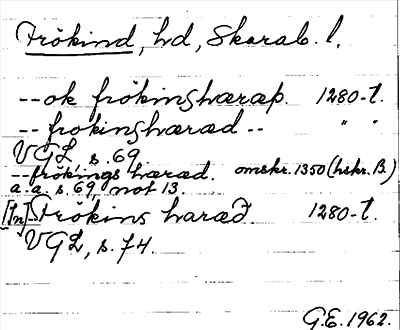 Frökind, hd, Skarab. l.
-- ok frökingshæræþ. 1280-t.
-- frokingshæræd -- " "
VGL, s. 69
-- frökings hæræd. omskr. 1350 (hskr. B.)
a. a. s. 69, not 13.
[In] Frökins haræd. 1280-t.
VGL, s. 74.
G.E. 1962.